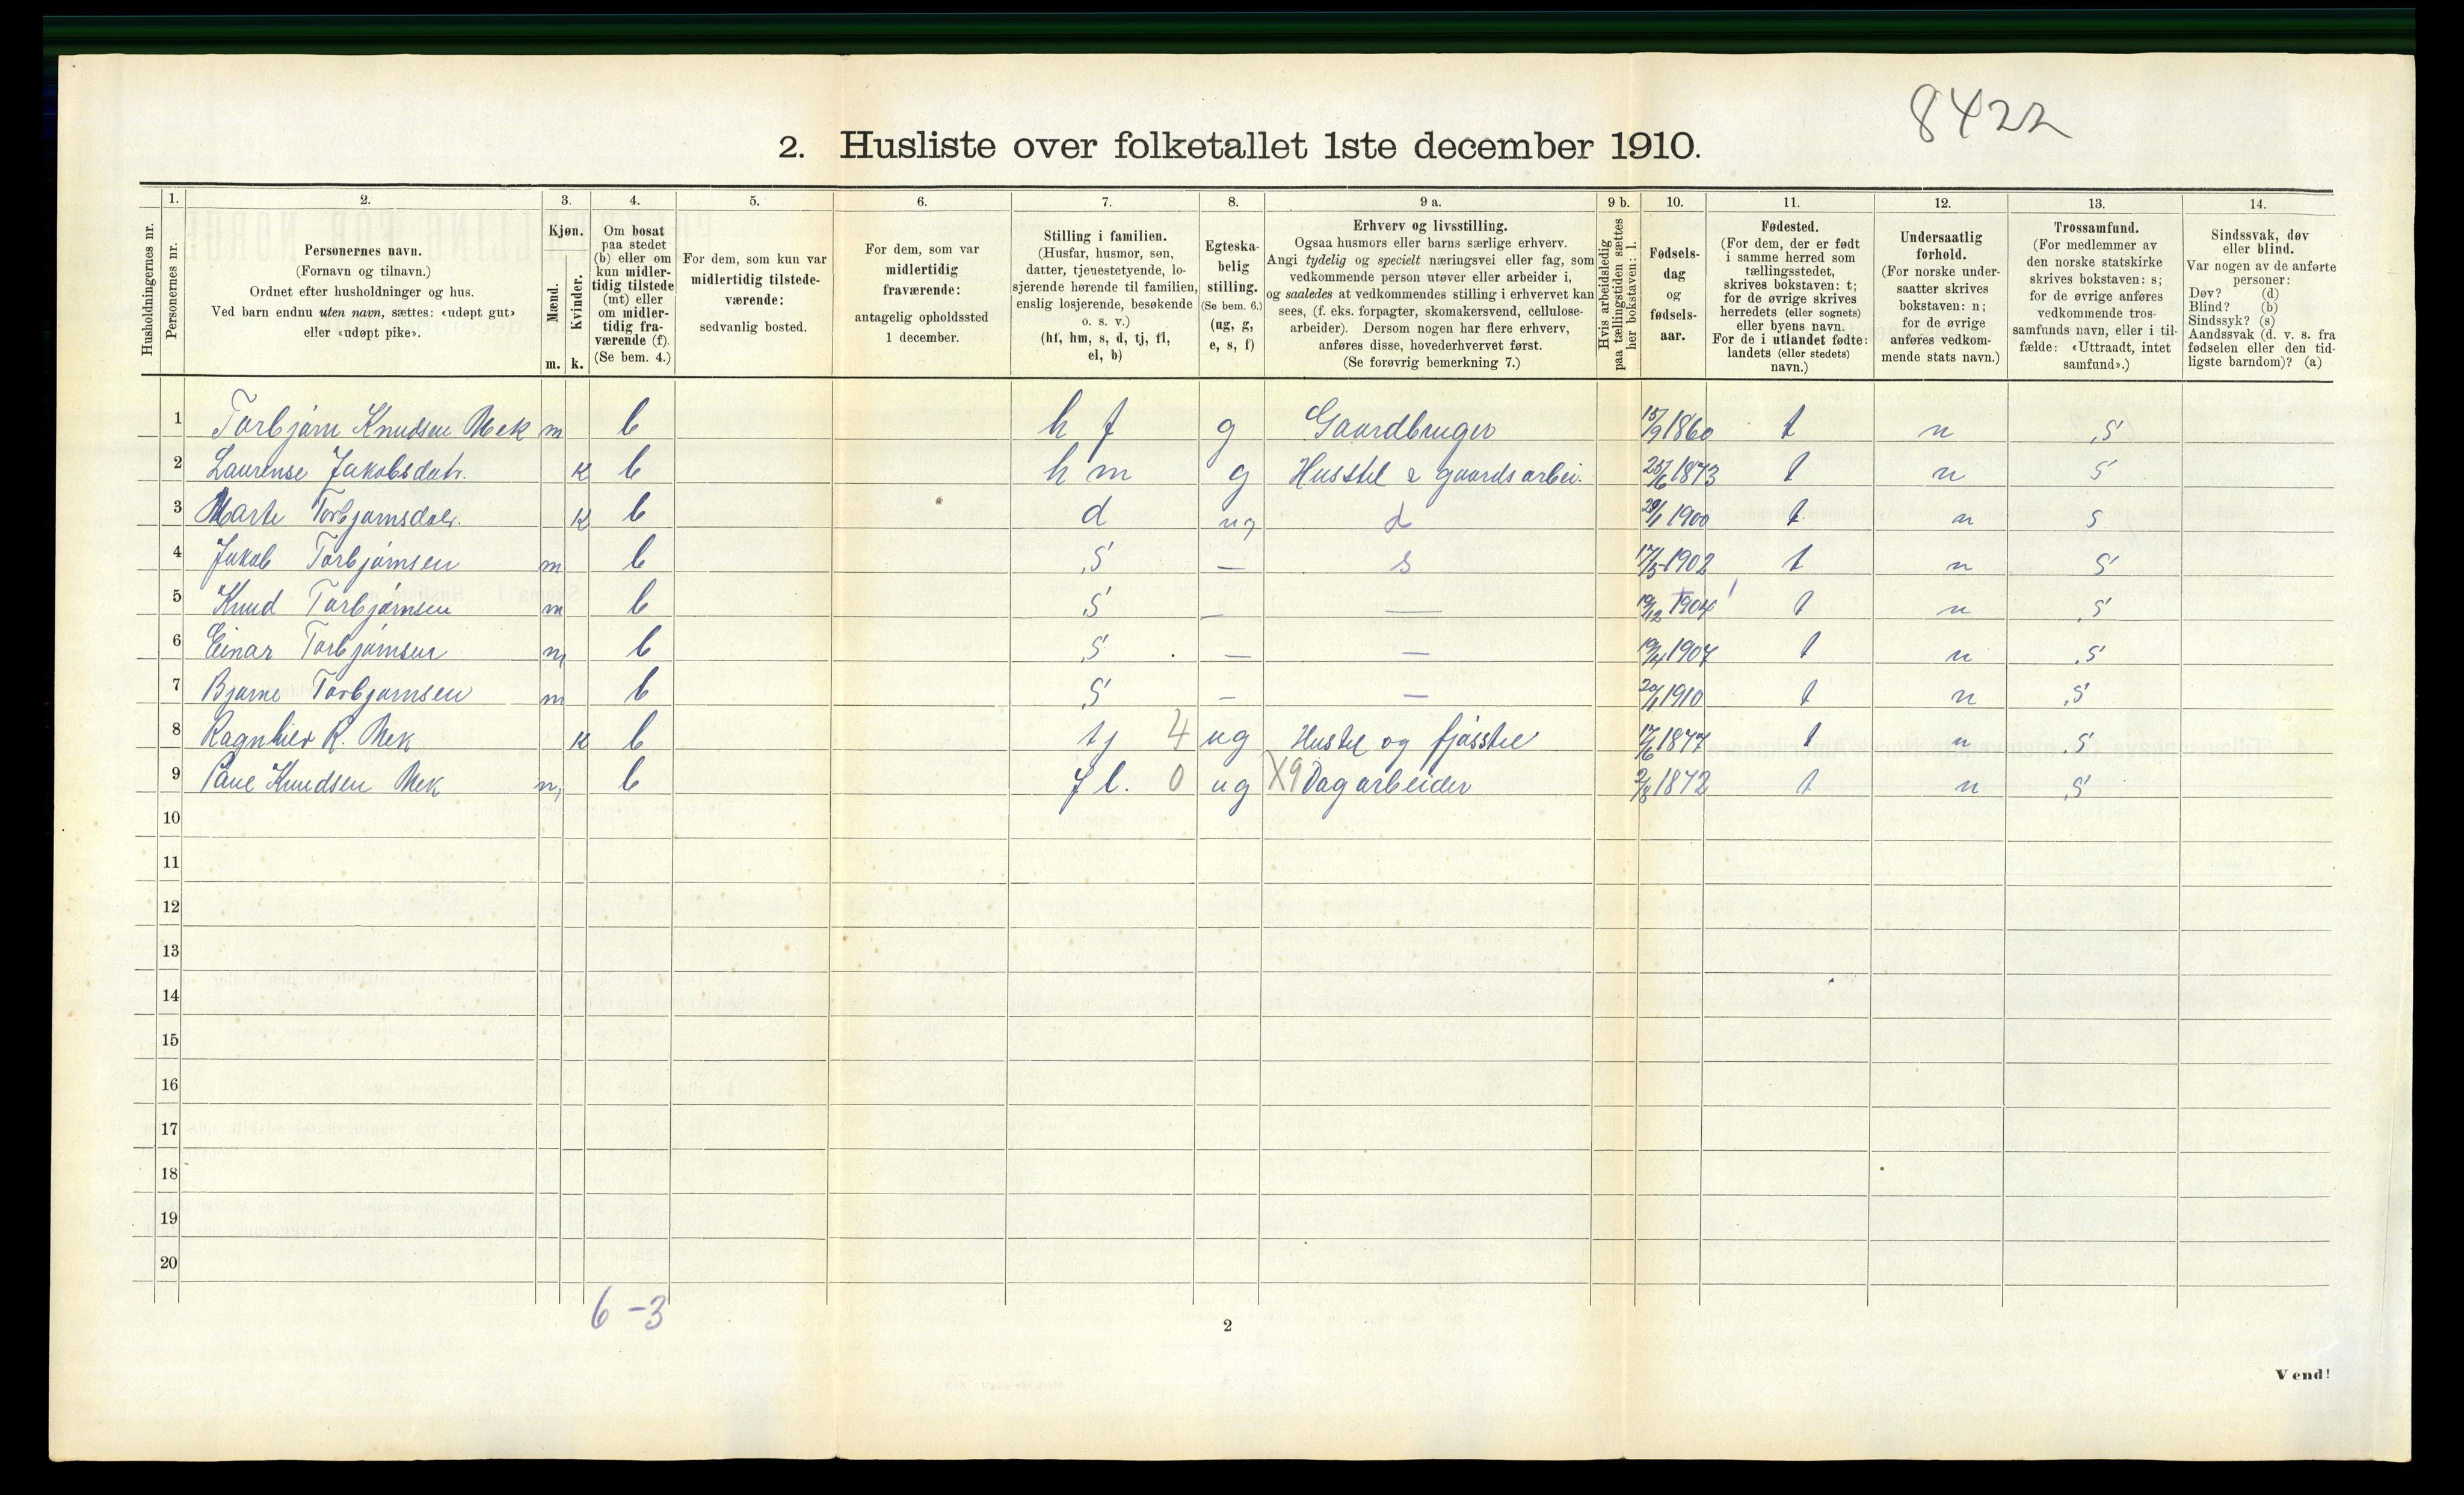 8422
2. Husliste over folketallet 1ste december 1910.
Husholdningernes nr.
1.
Personernes nr.
2.
Personernes navn.
(Fornavn og tilnavn.)
Ordnet efter husholdninger og hus.
Ved barn endnu uten navn, sættes: «udøpt gut»
eller «udøpt pike».
3.
Kjøn.
Mænd.
Kvinder.
m. k.
4.
Om bosat
paa stedet
(b) eller om
kun midler-
tidig tilstede
(mt) eller
om midler-
tidig fra-
værende (f).
(Se bem. 4.)
5.
For dem, som kun var
midlertidig tilstede-
værende:
sedvanlig bosted.
6.
For dem, som var
midlertidig
fraværende:
antagelig opholdssted
1 december.
7.
Stilling i familien.
(Husfar, husmor, søn,
datter, tjenestetyende, lo-
sjerende hørende til familien,
enslig losjerende, besøkende
o. s. v.)
(hf, hm, s, d, tj, fl,
el, b)
8.
Egteska-
belig
stilling.
(Se bem. 6.)
(ug, g,
e, s, f)
9 a.
Erhverv og livsstilling.
Ogsaa husmors eller barns særlige erhverv.
Angi tydelig og specielt næringsvei eller fag, som
vedkommende person utøver eller arbeider i,
og saaledes at vedkommendes stilling i erhvervet kan
sees, (f. eks. forpagter, skomakersvend, cellulose-
arbeider). Dersom nogen har flere erhverv,
anføres disse, hovederhvervet først.
(Se forøvrig bemerkning 7.)
9 b.
Hvis arbeidsledig
paa tællingstiden sættes
her bokstaven: l.
10.
Fødsels-
dag
og
fødsels-
aar.
11.
Fødested.
(For dem, der er født
i samme herred som
tællingsstedet,
skrives bokstaven: t;
for de øvrige skrives
herredets (eller sognets)
eller byens navn.
For de i utlandet fødte:
landets (eller stedets)
navn.)
12.
Undersaatlig
forhold.
(For norske under-
saatter skrives
bokstaven: n;
for de øvrige
anføres vedkom-
mende stats navn.)
13.
Trossamfund.
(For medlemmer av
den norske statskirke
skrives bokstaven: s;
for de øvrige anføres
vedkommende tros-
samfunds navn, eller i til-
fælde: «Uttraadt, intet
samfund».)
14.
Sindssvak, døv
eller blind.
Var nogen av de anførte
personer:
Døv? (d)
Blind? (b)
Sindssyk? (s)
Aandssvak (d. v. s. fra
fødselen eller den tid-
ligste barndom)? (a)
1 Torbjørn Knudsen Mek m b h f g Gaardbruger 15/9 1860 t n s
2 Laurense Jakobsdatr. k b h m g Husstel & gaardsarbei. 25/6 1873 t n s
3 Marte Torbjørnsdatr. k b d ug d 1900 t n s
4 Jakob Torbjørnsen m b s — s 17/5 1902 t n s
5 Knud Torbjørnsen m b s — — 19/12 1904 t n s
6 Einar Torbjørnsen m b s — — 19/4 1907 t n s
7 Bjarne Torbjørnsen m b s — — 20/1 1910 t n s
8 Ragnhild K. Mek k b tj 4 ug Hustel og fjøsstel 17/6 1877 t n s
9 Paul Knudsen Mek m b f l. 0 ug X9 Dagarbeider 2/8 1872 t n s
10
11
12
13
14
15
16
17
18
19
20
6 - 3
2
Vend!